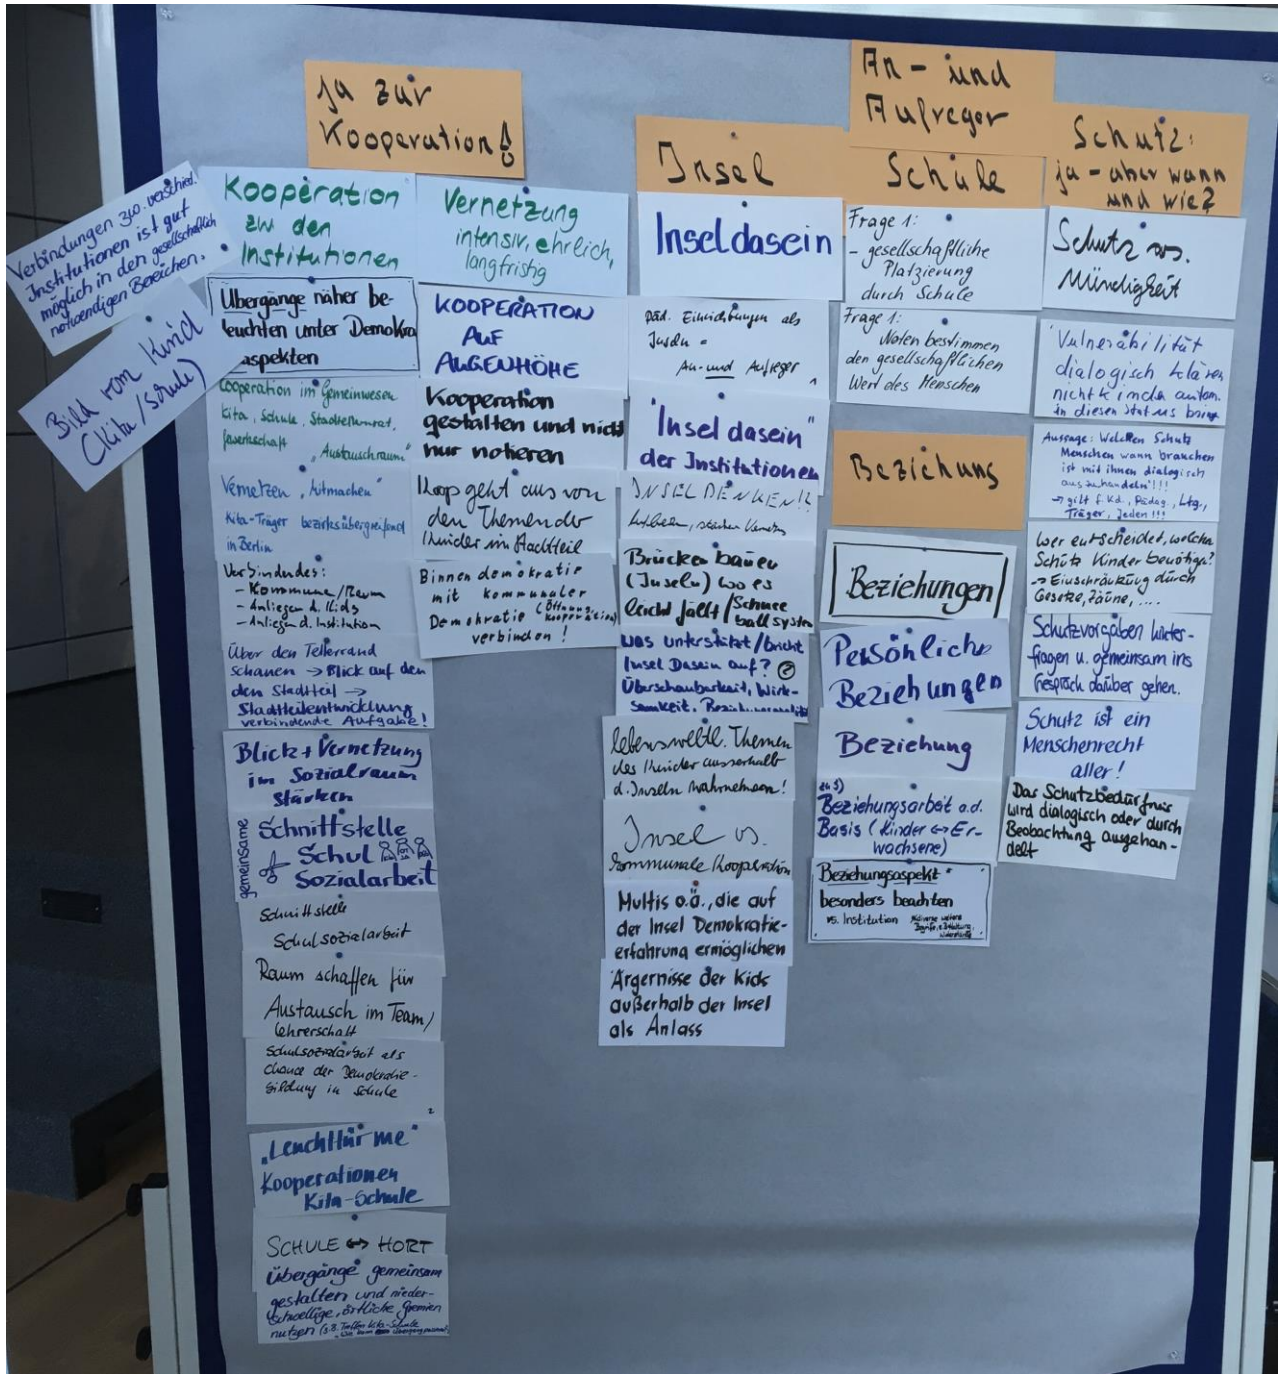 ja zur
Kooperation!
Verbindungen zw. verschied.
Institutionen ist gut
möglich in den gesellschaftlich
notwendigen Bereichen.
Bild vom Kind
(Kita/Schule)
Kooperation
zw den
Institutionen
Übergänge näher be-
leuchten unter Demokra
aspekten
Cooperation im Gemeinwesen
Kita, Schule, Stadtteilmrat,
"Austauschraum"
Vernetzen, "Mitmachen"
Kita-Träger bezirksübergreifend
in Berlin
Verbindendes:
- Kommune/Raum
- Anliegen d. Kids
- Anliegen d. Institution
Über den Tellerrand
schauen → Blick auf den
den Stadtteil →
Stadtteilentwicklung
verbindende Aufgabe!
Blick + Vernetzung
im Sozialraum
stärken
gemeinsame
Schnittstelle
Schul
Sozialarbeit
Schnittstelle
Schulsozialarbeit
Raum schaffen für
Austausch im Team/
Lehrerschaft
Schulsozialarbeit als
Chance der Demokratie-
bildung in Schule
2
"Leuchttürme"
Kooperationen
Kita-Schule
SCHULE ↔ HORT
Übergänge gemeinsam
gestalten und nieder-
schwellige, örtliche Gremien
nutzen (z.B. Treffen Kita-Schule
Vernetzung
intensiv, ehrlich,
langfristig
KOOPERATION
AUF
AUGENHÖHE
Kooperation
gestalten und nicht
nur notieren
Koop geht aus von
den Themen der
Kinder im Stadtteil
Binnendemokratie
mit kommunaler
Demokratie (Öffnung, Kooperation)
verbinden!
Insel
Inseldasein
Päd. Einrichtungen als
Inseln =
An- und Aufreger
"Inseldasein"
der Institutionen
INSELDENKEN!!
Brücken bauen
(Inseln) wo es
leicht fällt/Schnee
ballsystem
Was unterstützt/bricht
Insel Dasein auf?
Überschaubarkeit, Wirk-
samkeit,
lebensweltl. Themen
des Kinder ausserhalb
d. Inseln wahrnehmen!
Insel vs.
kommunale Kooperation
Multis o.ä., die auf
der Insel Demokratie-
erfahrung ermöglichen
Ärgernisse der Kids
außerhalb der Insel
als Anlass
An- und
Aufreger
Schule
Frage 1:
- gesellschaftliche
Platzierung
durch Schule
Frage 1:
Noten bestimmen
den gesellschaftlichen
Wert des Menschen
Beziehung
Beziehungen
Persönliche
Beziehungen
Beziehung
zu 5)
Beziehungsarbeit a.d.
Basis (Kinder ↔ Er-
wachsene)
Beziehungsaspekt
besonders beachten
vs. Institution
Schutz:
ja - aber wann
und wie?
Schutz vs.
Mündigkeit
Vulnerabilität
dialogisch klären
nicht Kinder autom.
in diesen Status bringen
Aussage: Welchen Schutz
Menschen wann brauchen
ist mit ihnen dialogisch
auszuhandeln!!!
→ gilt f. Kd., Pädag., Ltg.,
Träger, Jeden!!!
Wer entscheidet, welchen
Schutz Kinder benötigen?
→ Einschränkung durch
Gesetze, Zäune, ....
Schutzvorgaben hinter-
fragen u. gemeinsam ins
Gespräch darüber gehen.
Schutz ist ein
Menschenrecht
aller!
Das Schutzbedürfnis
wird dialogisch oder durch
Beobachtung ausgehan-
delt